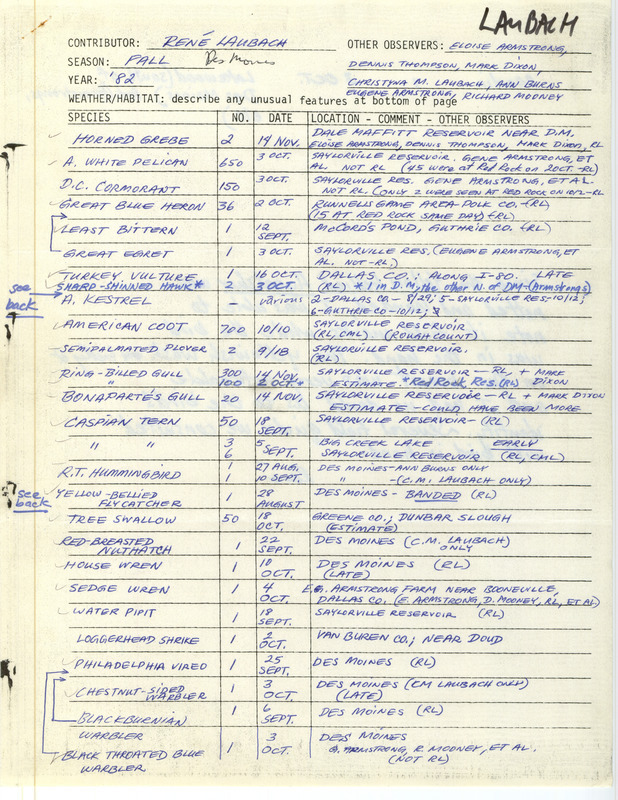 LAUBACH
CONTRIBUTOR: RENÉ LAUBACH OTHER OBSERVERS: ELOISE ARMSTRONG,
SEASON: FALL Des Moines DENNIS THOMPSON, MARK DIXON,
YEAR: '82 CHRISTYNA M. LAUBACH, ANN BURNS
EUGENE ARMSTRONG, RICHARD MOONEY
WEATHER/HABITAT: describe any unusual features at bottom of page
SPECIES NO. DATE LOCATION - COMMENT - OTHER OBSERVERS
HORNED GREBE 2 14 NOV. DALE MAFFITT RESERVOIR NEAR D.M.
ELOISE ARMSTRONG, DENNIS THOMPSON, MARK DIXON, RL
A. WHITE PELICAN 650 3 OCT. SAYLORVILLE RESERVOIR. GENE ARMSTRONG, ET
AL. NOT RL (45 were at Red Rock on 2 OCT. -RL)
D.C. CORMORANT 150 3 OCT. SAYLORVILLE RES. GENE ARMSTRONG, ET AL.
NOT RL (ONLY 2 WERE SEEN AT RED ROCK ON 10/2-RL
GREAT BLUE HERON 36 2 OCT. RUNNELLS GAME AREA-POLK CO. -(RL)
(15 AT RED ROCK SAME DAY)-(RL)
LEAST BITTERN 1 12 SEPT. McCORD'S POND, GUTHRIE CO. -(RL)
GREAT EGRET 1 3 OCT. SAYLORVILLE RES. (EUGENE ARMSTRONG, ET
AL. NOT -RL.)
TURKEY VULTURE 1 16 OCT. DALLAS CO.; ALONG I-80. LATE
see back SHARP-SHINNED HAWK* 2 3 OCT. (RL) * 1 in D.M., the other N. of DM-(Armstrongs)
A. KESTREL - various 2-DALLAS CO.- 8/29; 5-SAYLORVILLE RES-10/12;
6-GUTHRIE CO-10/12;
AMERICAN COOT 700 10/10 SAYLORVILLE RESERVOIR
(RL, CML) (ROUGH COUNT)
SEMIPALMATED PLOVER 2 9/18 SAYLORVILLE RESERVOIR.
(RL)
RING-BILLED GULL 300 14 NOV. SAYLORVILLE RESERVOIR - RL + MARK
" 100 2 OCT.* ESTIMATE *Red Rock Res. (RL) DIXON
BONAPARTE'S GULL 20 14 NOV. SAYLORVILLE RESERVOIR - RL + MARK DIXON
ESTIMATE - COULD HAVE BEEN MORE
CASPIAN TERN 50 18 SEPT. SAYLORVILLE RESERVOIR - (RL)
" " 3 5 SEPT. BIG CREEK LAKE EARLY
6 SAYLORVILLE RESERVOIR (RL, CML)
R.T. HUMMINGBIRD 1 27 AUG. DES MOINES-ANN BURNS ONLY
1 10 SEPT. " -(C.M. LAUBACH ONLY)
see back YELLOW-BELLIED FLYCATCHER 1 28 AUGUST DES MOINES - BANDED (RL)
TREE SWALLOW 50 18 OCT, GREENE CO.; DUNBAR SLOUGH
(ESTIMATE)
RED-BREASTED NUTHATCH 1 22 SEPT. DES MOINES (C.M. LAUBACH)
ONLY
HOUSE WREN 1 10 OCT. DES MOINES (RL)
(LATE)
SEDGE WREN 1 4 OCT. E.G. ARMSTRONG FARM NEAR BOONEVILLE,
DALLAS CO. (E. ARMSTRONG, D. MOONEY, RL, ET AL)
WATER PIPIT 1 18 SEPT. SAYLORVILLE RESERVOIR (RL)
LOGGERHEAD SHRIKE 1 2 OCT. VAN BUREN CO.; NEAR DOUD
PHILADELPHIA VIREO 1 25 SEPT. DES MOINES (RL)
CHESTNUT-SIDED WARBLER 1 3 OCT. DES MOINES (CM LAUBACH ONLY)
(LATE)
BLACKBURNIAN WARBLER 1 6 SEPT. DES MOINES (RL)
BLACK THROATED BLUE WARBLER 1 3 OCT. DES MOINES
ARMSTRONG, R. MOONEY, ET AL.
(NOT RL)